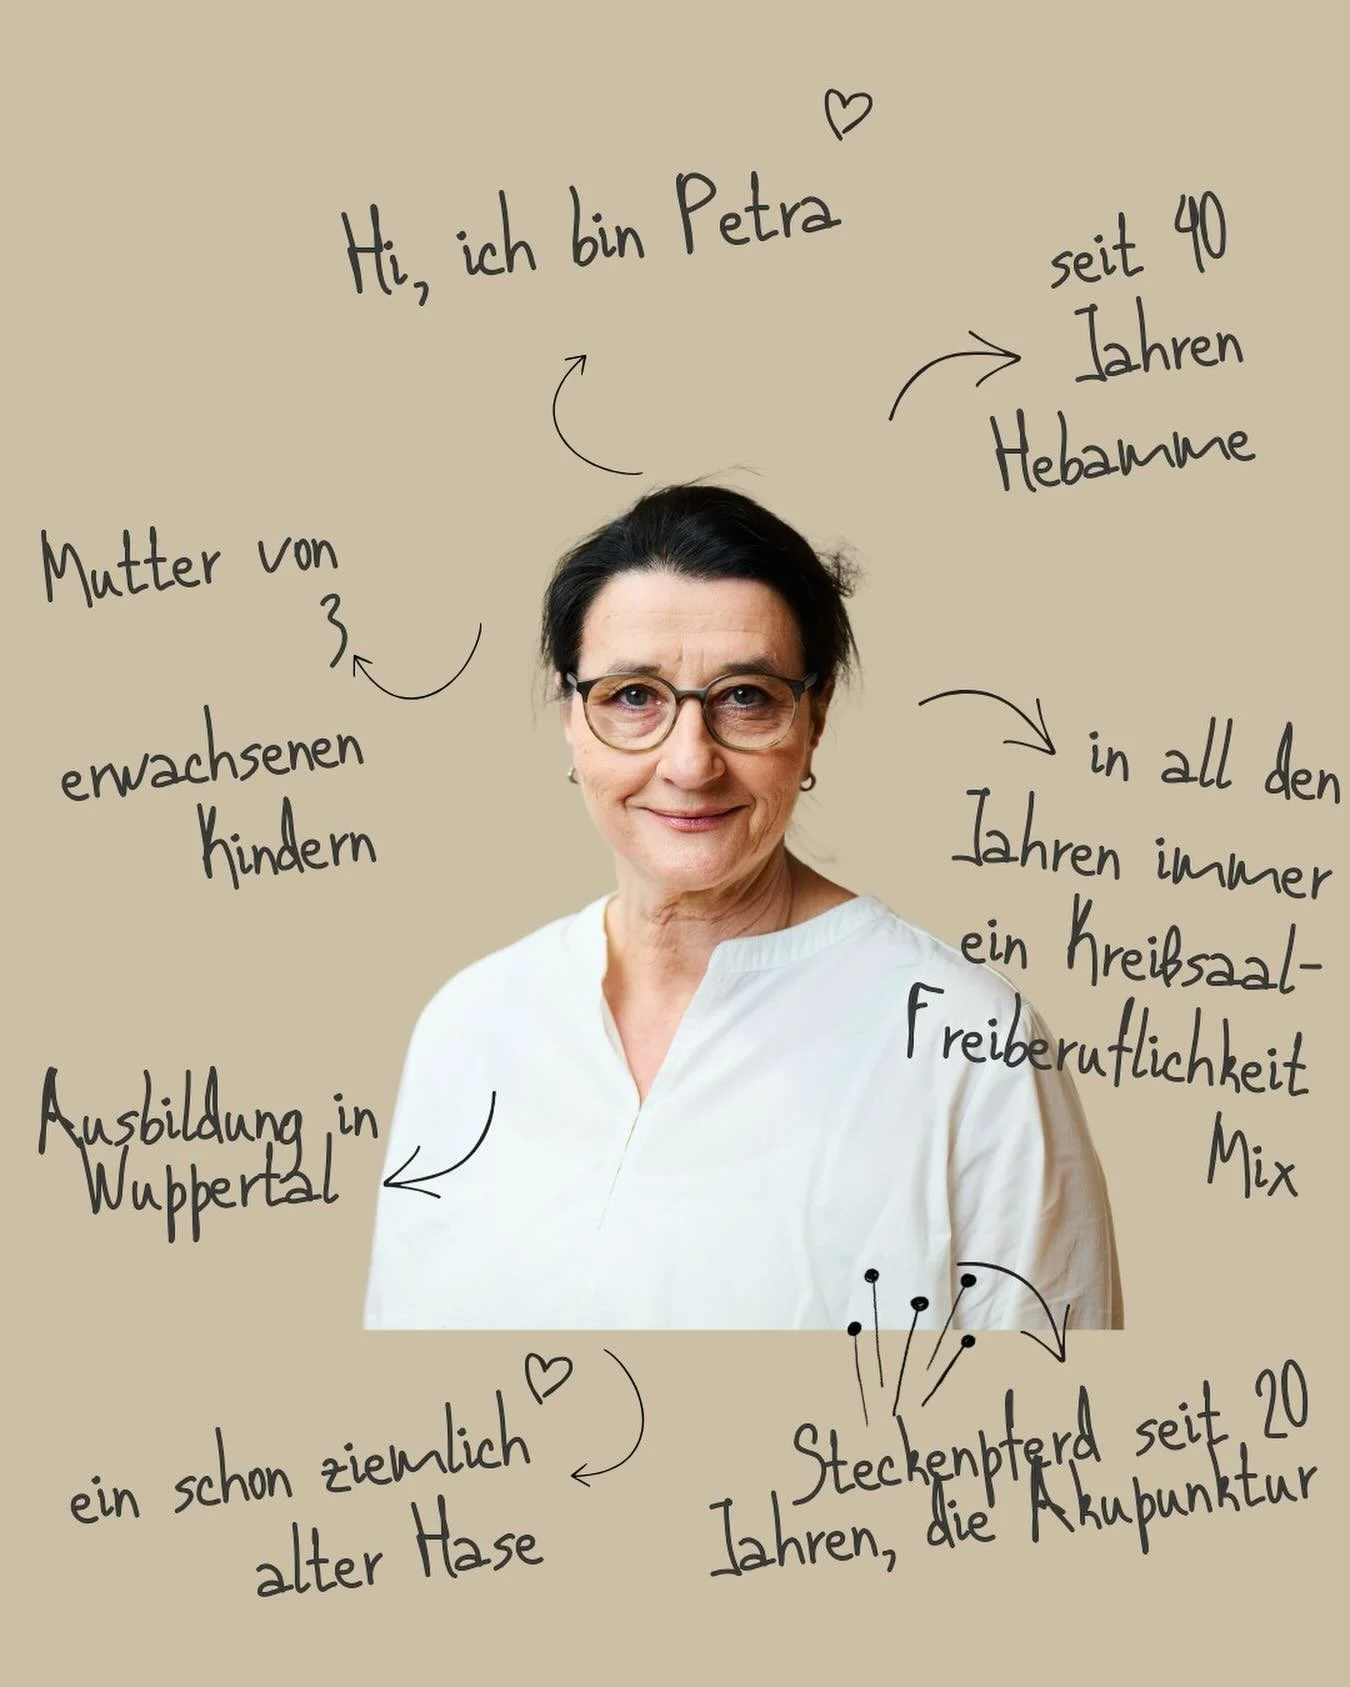 Hi, ich bin Petra
seit 40
Jahren
Hebamme
Mutter von
3
erwachsenen
Kindern
in all den
Jahren immer
ein Kreißsaal-
Freiberuflichkeit
Mix
Ausbildung in
Wuppertal
ein schon ziemlich
alter Hase
Steckenpferd seit 20
Jahren, die Akupunktur